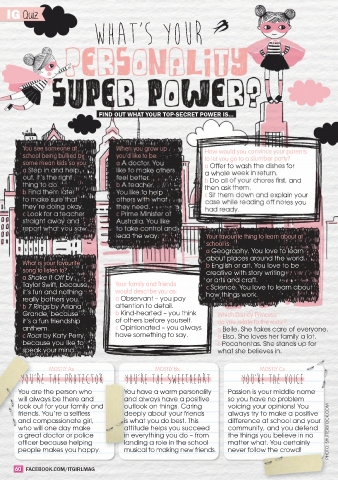 IG Quiz
WHAT'S YOUR
PERSONALITY
SUPER POWER?
FIND OUT WHAT YOUR TOP-SECRET POWER IS...
You see someone at
school being bullied by
some mean kids so you:
a Step in and help
out. It's the right
thing to do.
b Find them later
to make sure that
they're doing okay.
c Look for a teacher
straight away and
report what you saw.
When you grow up
you'd like to be:
a A doctor. You
like to make others
feel better.
b A teacher.
You like to help
others with what
they need.
c Prime Minister of
Australia. You like
to take control and
lead the way.
How would you convince your parents
to let you go to a slumber party?
a Offer to wash the dishes for
a whole week in return.
b Do all of your chores first, and
then ask them.
c Sit them down and explain your
case while reading off notes you
had ready.
What is your favourite
song to listen to?
a Shake It Off by
Taylor Swift, because
it's fun and nothing
really bothers you.
b 7 Rings by Ariana
Grande, because
it's a fun friendship
anthem.
c Roar by Katy Perry,
because you like to
speak your mind.
Your family and friends
would describe you as:
a Observant – you pay
attention to detail.
b Kind-hearted – you think
of others before yourself.
c Opinionated – you always
have something to say.
Your favourite thing to learn about at
school is:
a Geography. You love to learn
about places around the world.
b English or art. You love to be
creative with story writing
or arts and craft.
c Science. You love to learn about
how things work.
Which Disney Princess
Belle. She takes care of everyone.
Elsa. She loves her family a lot.
Pocahontas. She stands up for
what she believes in.
MOSTLY As
YOU'RE THE PROTECTOR
You are the person who
will always be there and
look out for your family and
friends. You're a selfless
and compassionate girl,
who will one day make
a great doctor or police
officer because helping
people makes you happy.
MOSTLY Bs
YOU'RE THE SWEETHEART
You have a warm personality
and always have a positive
outlook on things. Caring
deeply about your friends
is what you do best. This
attitude helps you succeed
in everything you do – from
landing a role in the school
musical to making new friends.
MOSTLY Cs
YOU'RE THE VOICE
Passion is your middle name
so you have no problem
voicing your opinions! You
always try to make a positive
difference at school and your
community, and you defend
the things you believe in no
matter what. You certainly
never follow the crowd!
60 FACEBOOK.COM/ITGIRLMAG